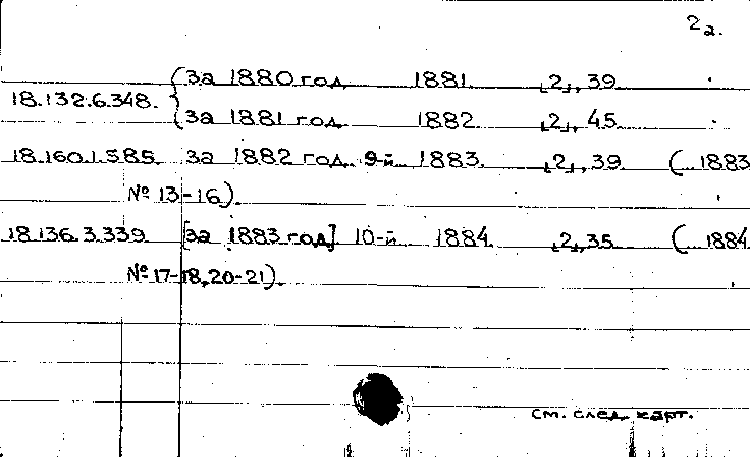 2а.
за 1880 год 1881. [2], 39
18.132.6.348.
за 1881 год 1882 [2], 45
18.160.1.585. за 1882 год 9-й 1883. [2], 39. (... 1883
№ 13-16).
18.136.3.339. [за 1883 год] 10-й 1884. [2], 35 (... 1884
№ 17-18, 20-21).
см. след. карт.